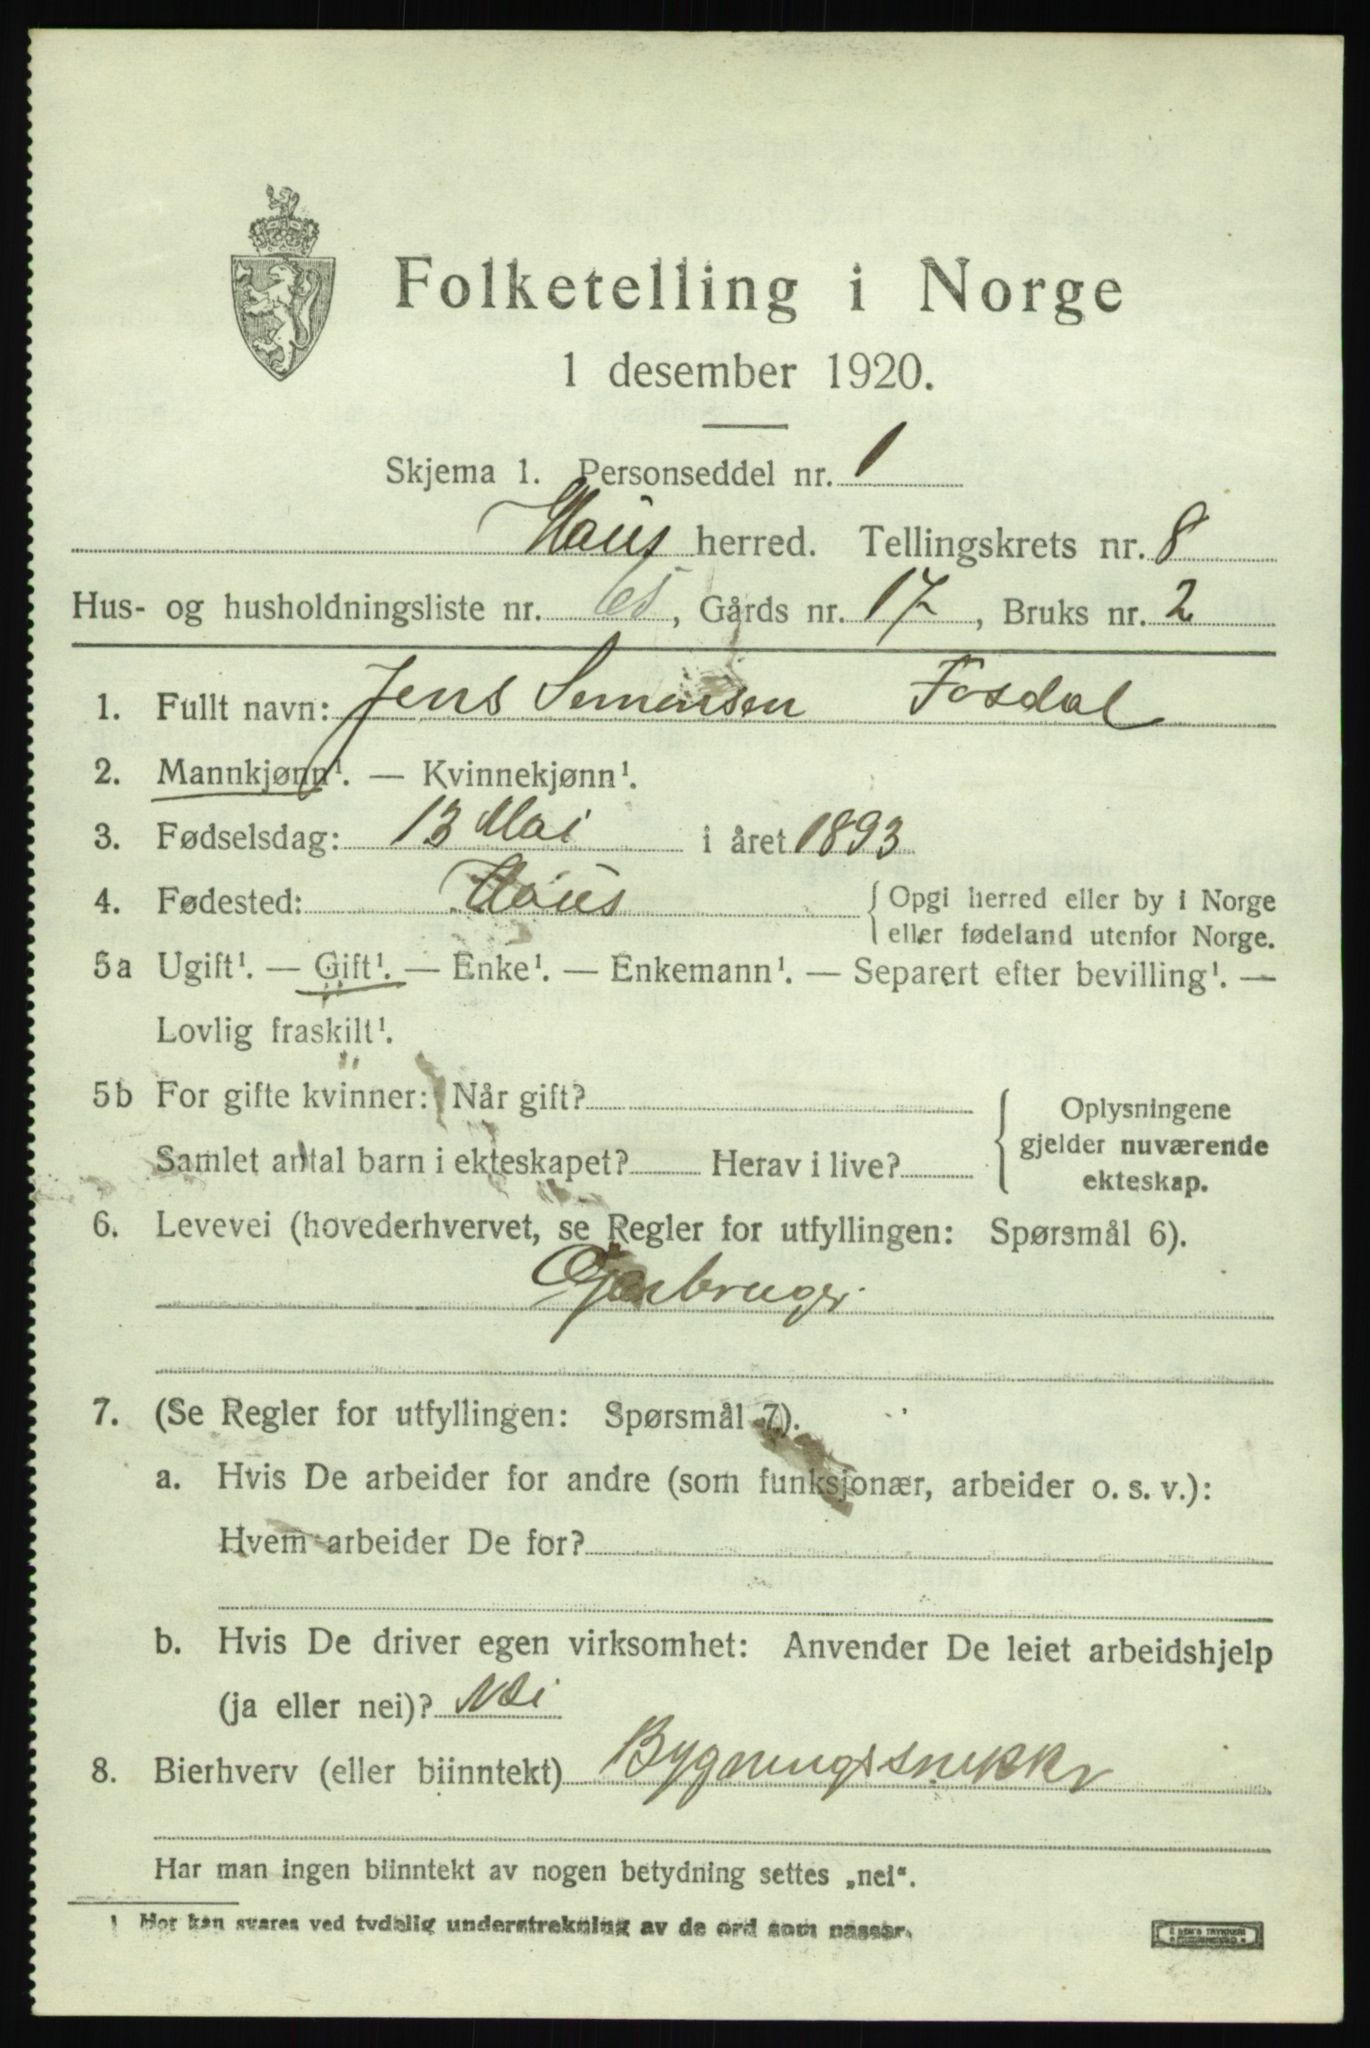 Folketelling i Norge
1 desember 1920.
Skjema 1. Personseddel nr. 1
Haus herred. Tellingskrets nr. 8
Hus- og husholdningsliste nr. , Gårds nr. 17, Bruks nr. 2
1. Fullt navn: Jens Simensen Fosdal
2. Mannkjønn¹. — Kvinnekjønn¹.
3. Fødselsdag: 13 Mai i året 1893
4. Fødested: Haus { Opgi herred eller by i Norge
eller fødeland utenfor Norge.
5a Ugift¹. — Gift¹. — Enke¹. — Enkemann¹. — Separert efter bevilling¹. —
Lovlig fraskilt¹.
5b For gifte kvinner: Når gift?
Samlet antal barn i ekteskapet? Herav i live?
{ Oplysningene
gjelder nuværende
ekteskap.
6. Levevei (hovederhvervet, se Regler for utfyllingen: Spørsmål 6).
Gårbruger
7. (Se Regler for utfyllingen: Spørsmål 7).
a. Hvis De arbeider for andre (som funksjonær, arbeider o. s. v.):
Hvem arbeider De for?
b. Hvis De driver egen virksomhet: Anvender De leiet arbeidshjelp
(ja eller nei)? Nei
8. Bierhverv (eller biinntekt) Bygningssnekkr
Har man ingen biinntekt av nogen betydning settes „nei“.
¹ Her kan svares ved tydelig understrekning av de ord som passer.